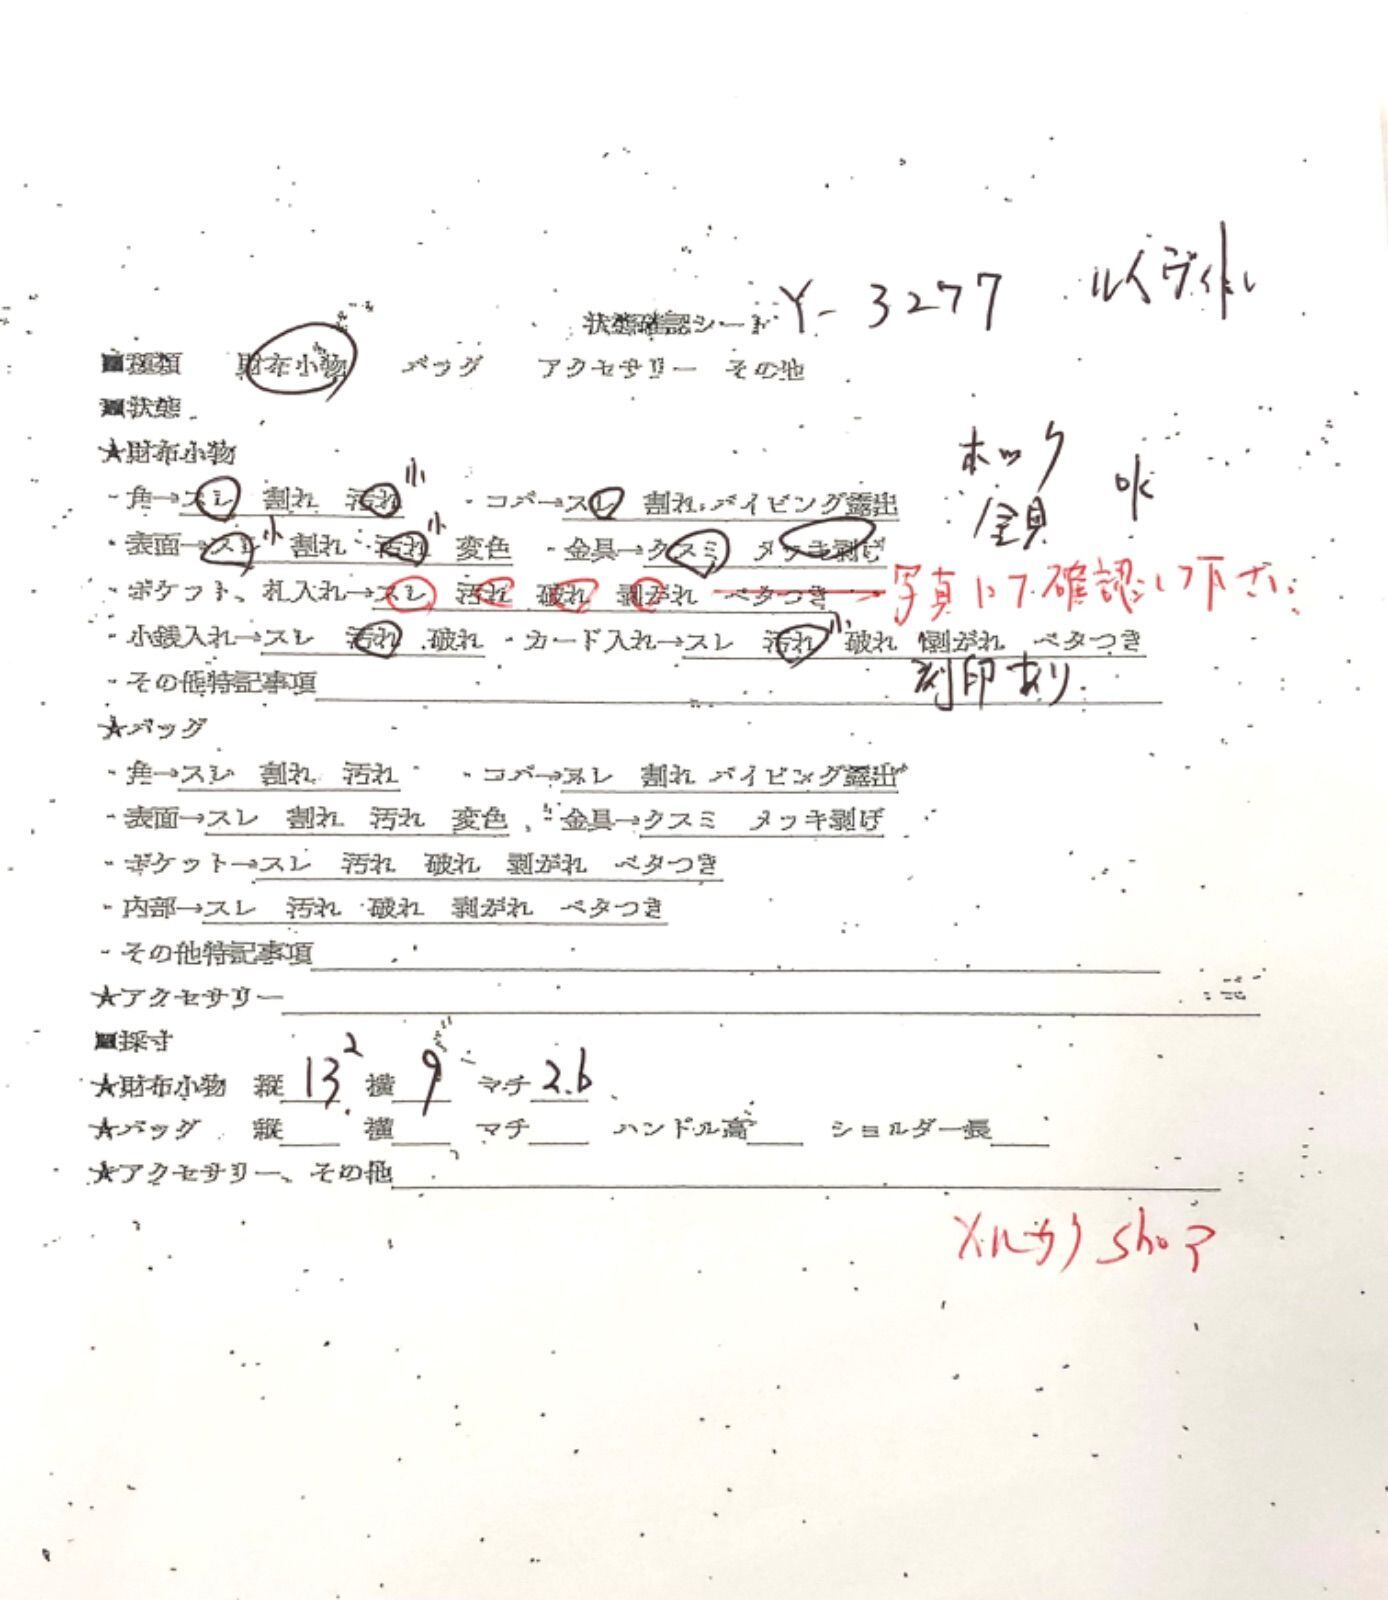 状態確認シート Y-3277 ルイヴィトン
■種類 財布小物 バッグ アクセサリー その他
■状態
★財布小物
ホック OK
・角→スレ 割れ 汚れ 小 ・コバ→スレ 割れ パイピング露出
金具
・表面→スレ 小 割れ 汚れ 小 変色 ・金具→クスミ メッキ剥げ
・ポケット、札入れ→スレ 汚れ 破れ 剥がれ ベタつき → 写真にて確認して下さい
・小銭入れ→スレ 汚れ 破れ ・カード入れ→スレ 汚れ 小 破れ 剥がれ ベタつき
・その他特記事項 刻印あり
★バッグ
・角→スレ 割れ 汚れ ・コバ→スレ 割れ パイピング露出
・表面→スレ 割れ 汚れ 変色 ・金具→クスミ メッキ剥げ
・ポケット→スレ 汚れ 破れ 剥がれ ベタつき
・内部→スレ 汚れ 破れ 剥がれ ベタつき
・その他特記事項
★アクセサリー
■採寸
★財布小物 縦 13.2 横 9 マチ 2.6
★バッグ 縦 横 マチ ハンドル高 ショルダー長
★アクセサリー、その他
メルカリ shop